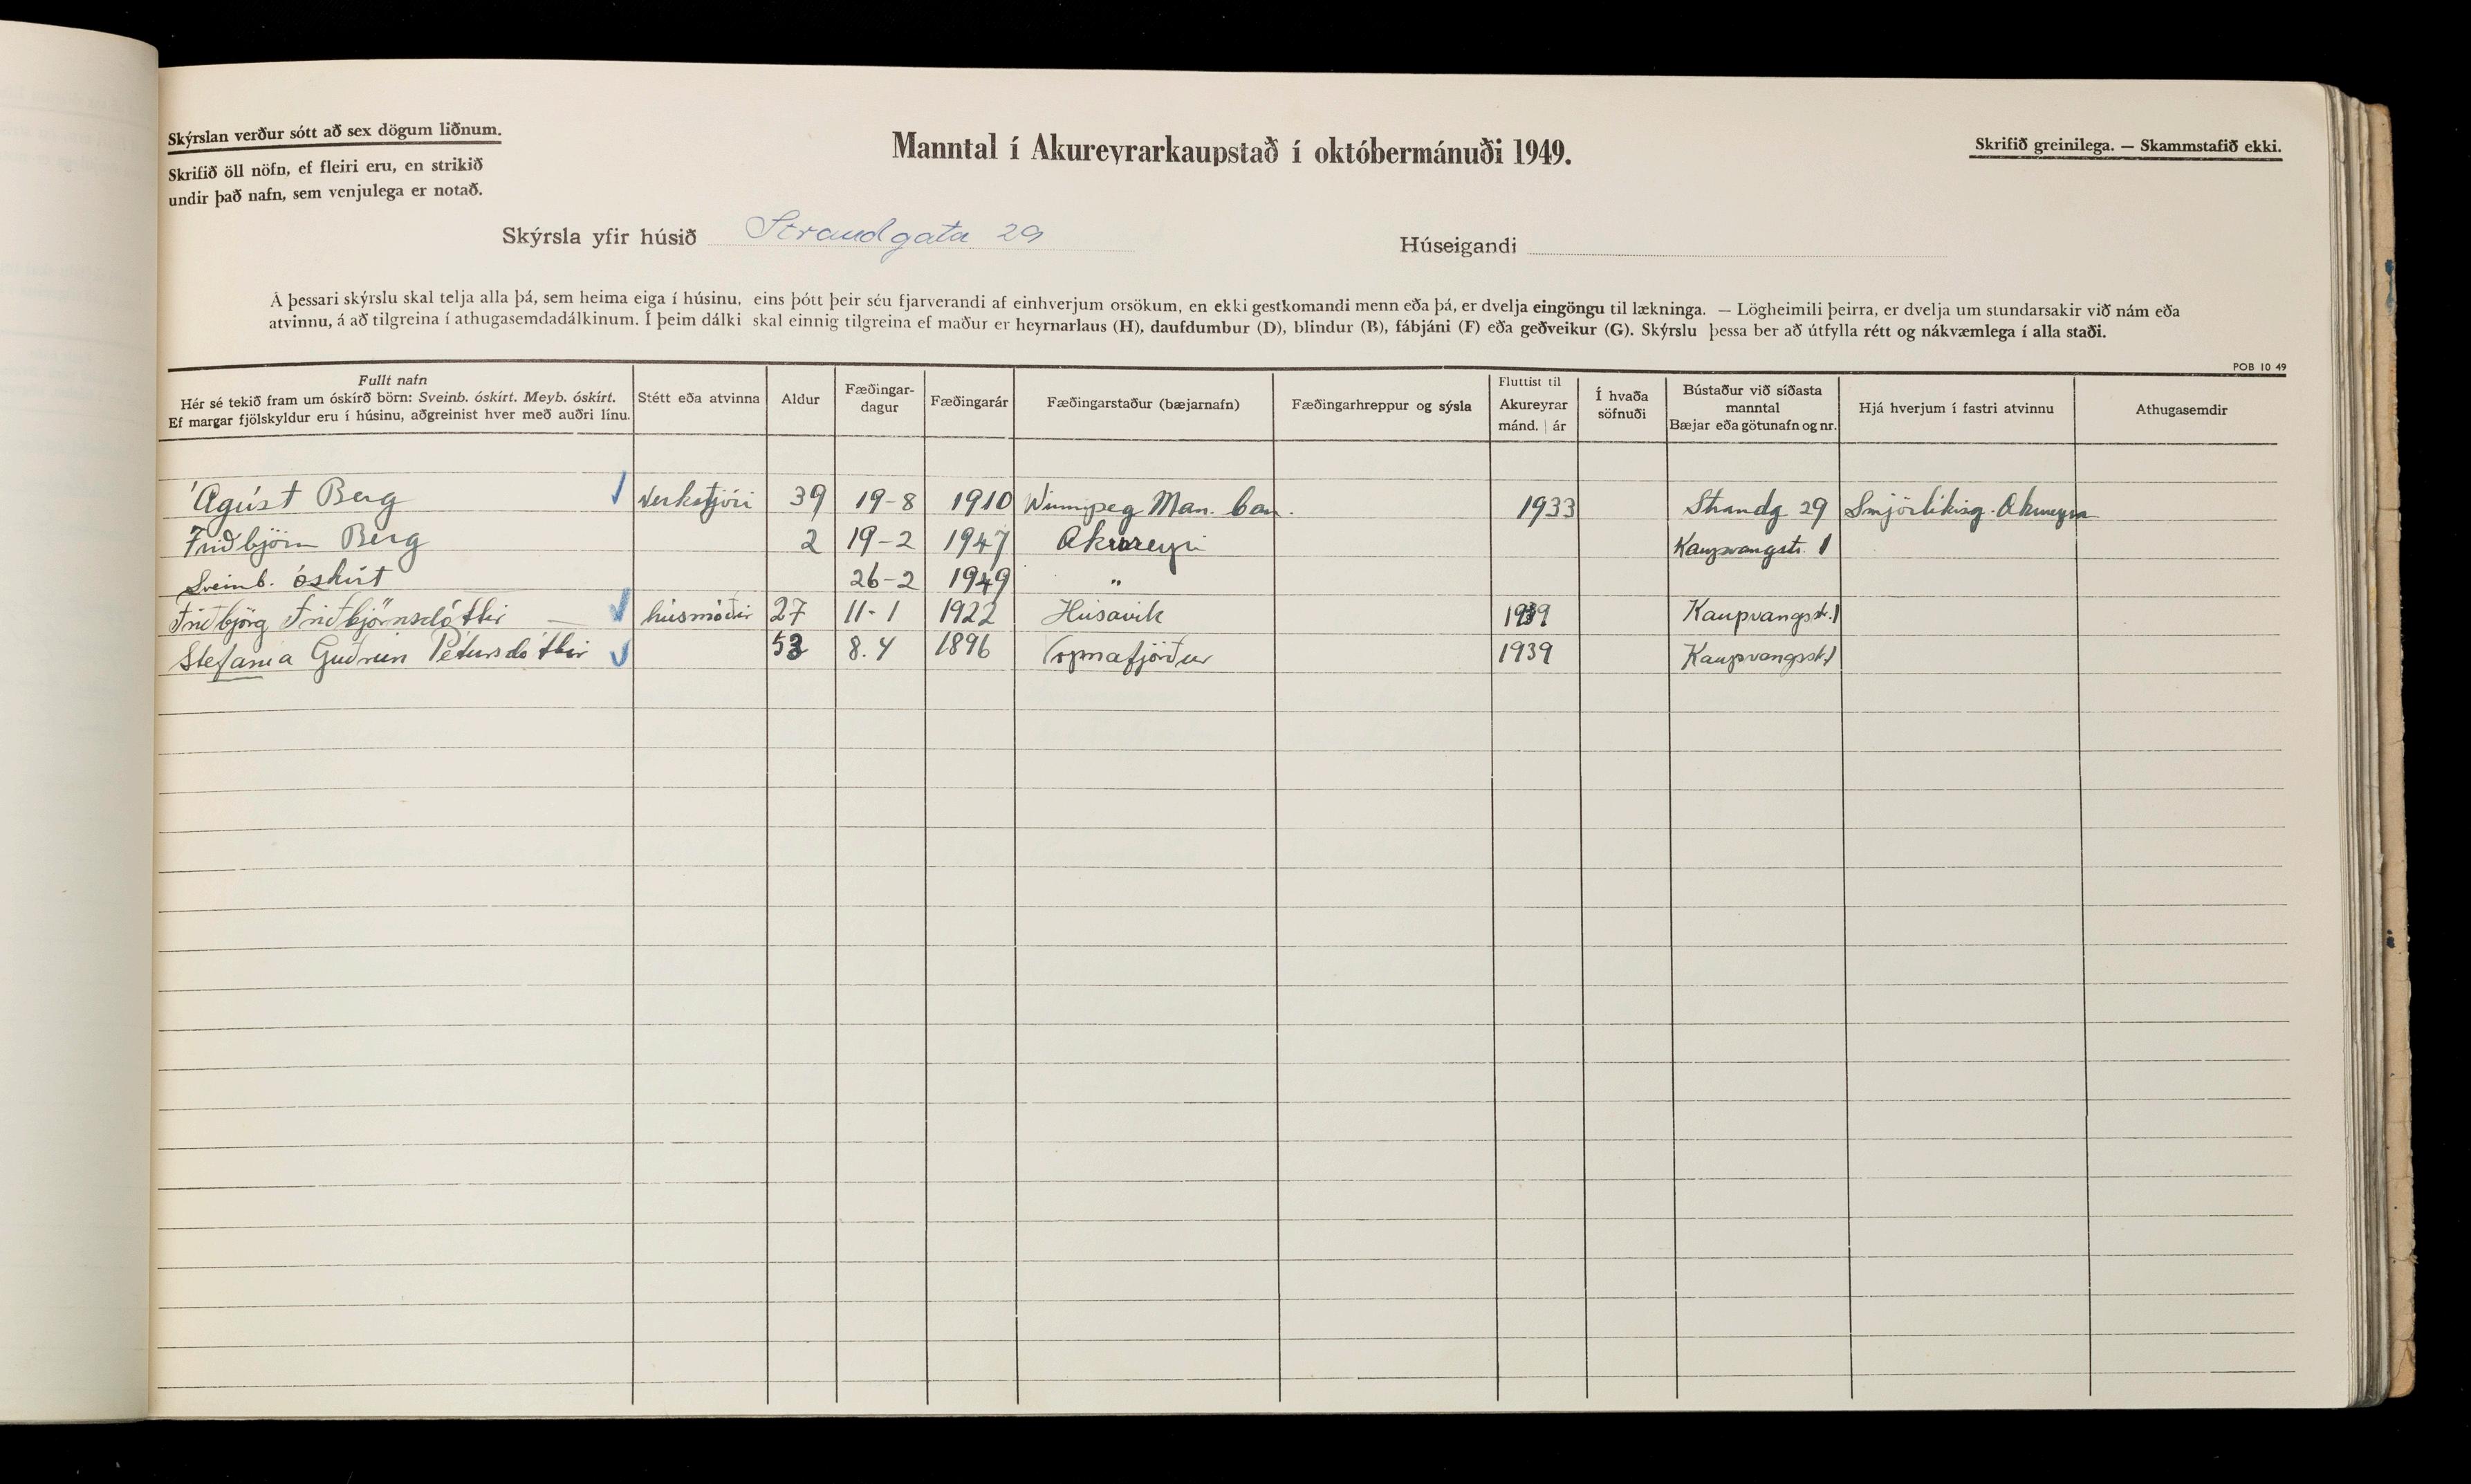 Skýrslan verður sótt að sex dögum liðnum.
Skrifið öll nöfn, ef fleiri eru, en strikið
undir það nafn, sem venjulega er notað.
Manntal í Akureyrarkaupstað í októbermánuði 1949.
Skrifið greinilega. — Skammstafið ekki.
Skýrsla yfir húsið Strandgata 29 Húseigandi
Á þessari skýrslu skal telja alla þá, sem heima eiga í húsinu, eins þótt þeir séu fjarverandi af einhverjum orsökum, en ekki gestkomandi menn eða þá, er dvelja eingöngu til lækninga. — Lögheimili þeirra, er dvelja um stundarsakir við nám eða
atvinnu, á að tilgreina í athugasemdadálkinum. Í þeim dálki skal einnig tilgreina ef maður er heyrnarlaus (H), daufdumbur (D), blindur (B), fábjáni (F) eða geðveikur (G). Skýrslu þessa ber að útfylla rétt og nákvæmlega í alla staði.
POB 10 49
Fullt nafn
Hér sé tekið fram um óskírð börn: Sveinb. óskírt. Meyb. óskírt.
Ef margar fjölskyldur eru í húsinu, aðgreinist hver með auðri línu.
Stétt eða atvinna
Aldur
Fæðingar-
dagur
Fæðingarár
Fæðingarstaður (bæjarnafn)
Fæðingarhreppur og sýsla
Fluttist til
Akureyrar
mánd. | ár
Í hvaða
söfnuði
Bústaður við síðasta
manntal
Bæjar eða götunafn og nr.
Hjá hverjum í fastri atvinnu
Athugasemdir
Ágúst Berg Verkstjóri 39 19-8 1910 Winnipeg Man. Can. 1933 Strandg 29 Smjörlíkisg. Akureyra
Friðbjörn Berg 2 19-2 1947 Akureyri Kaupvangstr. 1
Sveinb. óskírt 26-2 1949 "
Friðbjörg Friðbjörnsdóttir húsmóðir 27 11-1 1922 Húsavík 1939 Kaupvangsstr. 1
Stefanía Guðrún Pétursdóttir 53 8.4 1896 Vopnafjörður 1939 Kaupvangsstr 1